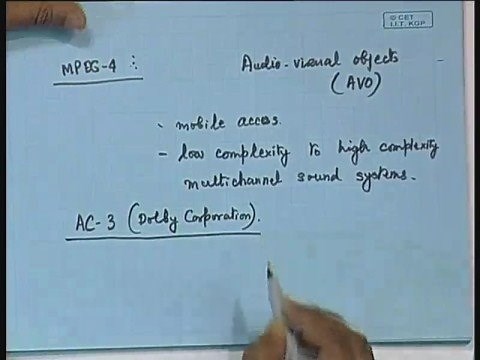 © CET
I.I.T. KGP
MPEG-4 : Audio-visual objects
(AVO)
- mobile access.
- low complexity to high complexity
multichannel sound systems.
AC-3 (Dolby Corporation).